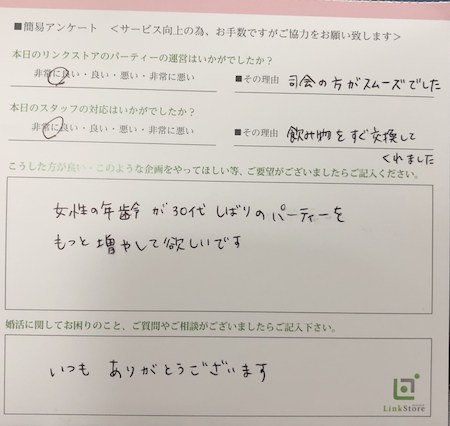 ■簡易アンケート　＜サービス向上の為、お手数ですがご協力をお願い致します＞
本日のリンクストアのパーティーの運営はいかがでしたか？
非常に良い・良い・悪い・非常に悪い　■その理由　司会の方がスムーズでした
本日のスタッフの対応はいかがでしたか？
非常に良い・良い・悪い・非常に悪い　■その理由　飲み物をすぐ交換して
くれました
こうした方が良い・このような企画をやってほしい等、ご要望がございましたらご記入ください。
女性の年齢が30代しばりのパーティーを
もっと増やして欲しいです
婚活に関してお困りのこと、ご質問やご相談がございましたらご記入下さい。
いつも ありがとうございます
LinkStore